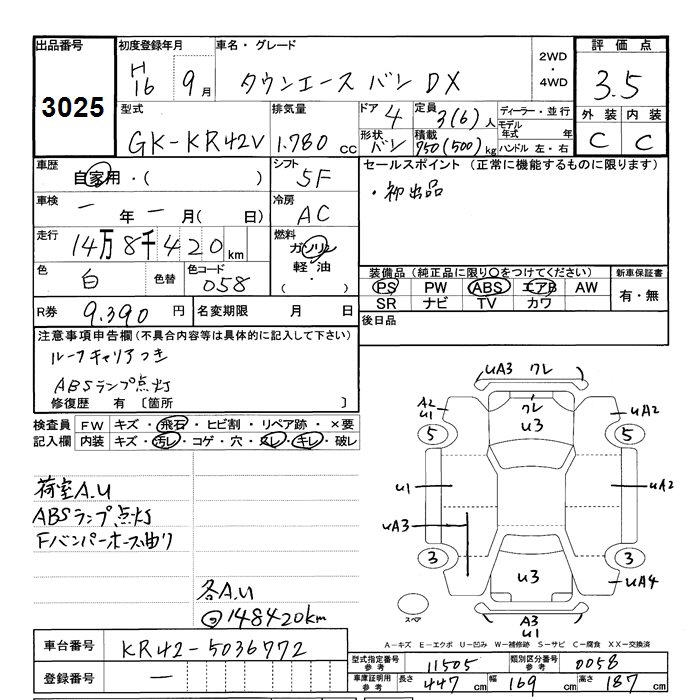 出品番号 初度登録年月 車名・グレード 2WD ・ 4WD 評価点
3025 H16 9月 タウンエース バン DX 3.5
型式 排気量 ドア 4 定員 3(6)人 ディーラー・並行 外装 内装
GK-KR42V 1.780cc 形状 バン 積載 750(500)kg モデル年式 年 ハンドル 左・右 C C
車歴 自家用・( ) シフト 5F セールスポイント (正常に機能するものに限ります)
車検 一年一月( 日) 冷房 AC ・初出品
走行 14万8千420km 燃料 ガソリン 軽油・( )
色 白 色替 色コード 058 装備品(純正品に限り○をつけてください) 新車保証書
PS PW ABS エアB AW 有・無
SR ナビ TV カワ
R券 9.390円 名変期限 月 日 後日品
注意事項申告欄(不具合内容等は具体的に記入して下さい)
ルーフキャリアつき
ABSランプ点灯
修復歴 有〔箇所 〕
検査員 FW キズ・飛石・ヒビ割・リペア跡・×要
記入欄 内装 キズ・汚レ・コゲ・穴・スレ・キレ・破レ
荷室A.U
ABSランプ点灯
Fバンパーホース曲り
各A.U
148420km
UA3 ワレ
A2 U1 ワレ U3 UA2
5 5
U1 UA2
UA3
3 3
U3 UA4
スペア A3 U1
A-キズ E-エクボ U-凹み W-補修跡 S-サビ C-腐食 XX-交換済
車台番号 KR42-5036772
登録番号 一
型式指定番号 参考 11505 類別区分番号 参考 0058
車庫証明用 参考 長さ 447cm 幅 169cm 高さ 187cm